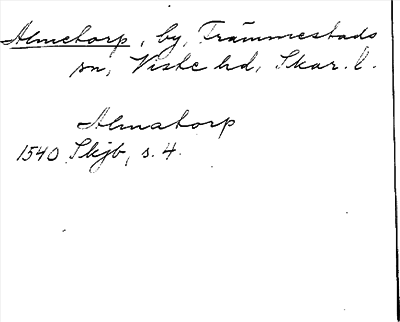 Almetorp, by, Främmestads
sn, Viste hd, Skar. l.
Almatorp
1540 Skjb, s. 4.